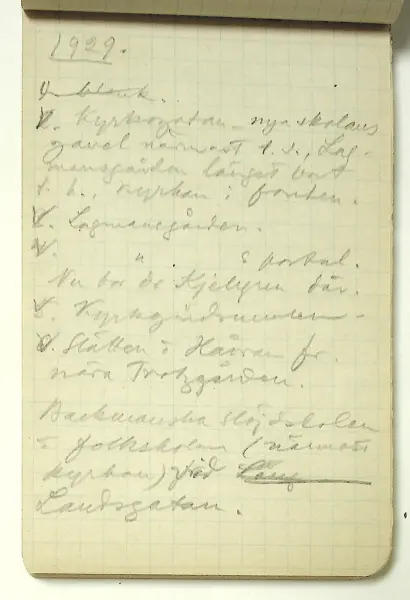 1929.
1. blank.
2. Kyrkogatan - nya skolans
gavel närmast t. v., Lag-
mansgården längst bort
t. h., kyrkan i fonden.
3. Lagmansgården.
4. " s portal.
Nu bor de Kjelgren där.
5. Kyrkogårdsmuren -
6. Slätten o Hästen fr.
nära Trotzgården.
Backmanska slöjdskolan
o folkskolan (närmast
kyrkan) vid Lång
Landsgatan.